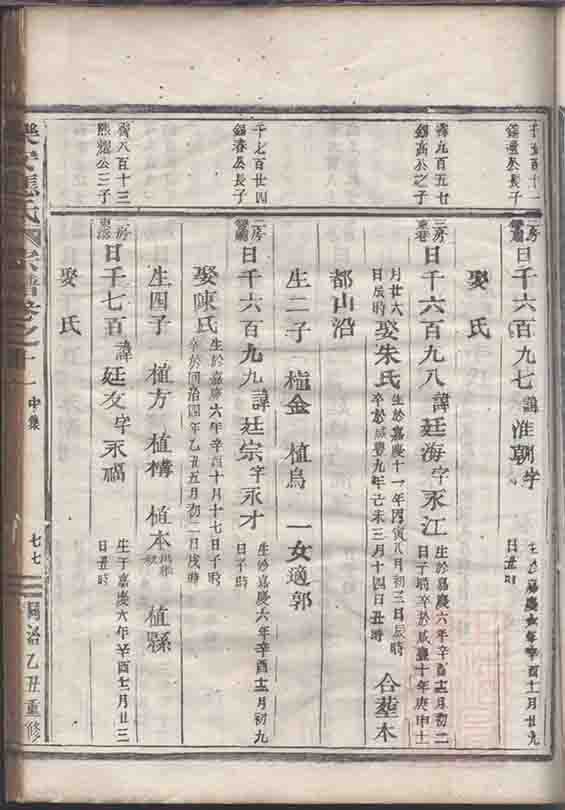 曰千六百九七 諱淮朝字
生於嘉慶六年辛酉十一月廿九
日丑時
娶 氏
霽九百五七
錦高公之子
三房
曰千六百九八 諱廷海字永江
生於嘉慶六年辛酉十二月初二
日子時卒於咸豐十年庚申十二
月廿六
日辰時
娶朱氏
生於嘉慶十一年丙寅八月初三日辰時
卒於咸豐九年己未三月十四日丑時
合葬本
都山沿
生二子 植金 植烏 一女適郭
千七百廿四
錦春公長子
二房
曰千六百九九 諱廷宗字永才
生於嘉慶六年辛酉十二月初九
日子時
娶陳氏
生於嘉慶六年辛酉十月十七日子時
卒於同治四年乙丑五月初二日戌時
生四子 植方 植構 植本 植縣
霽八百十三
熊耀公三子
曰千七百 諱廷友字永福
生于嘉慶六年辛酉十二月廿三
日丑時
娶 氏
應氏宗譜卷之十一
中集
七七
同治乙丑重修